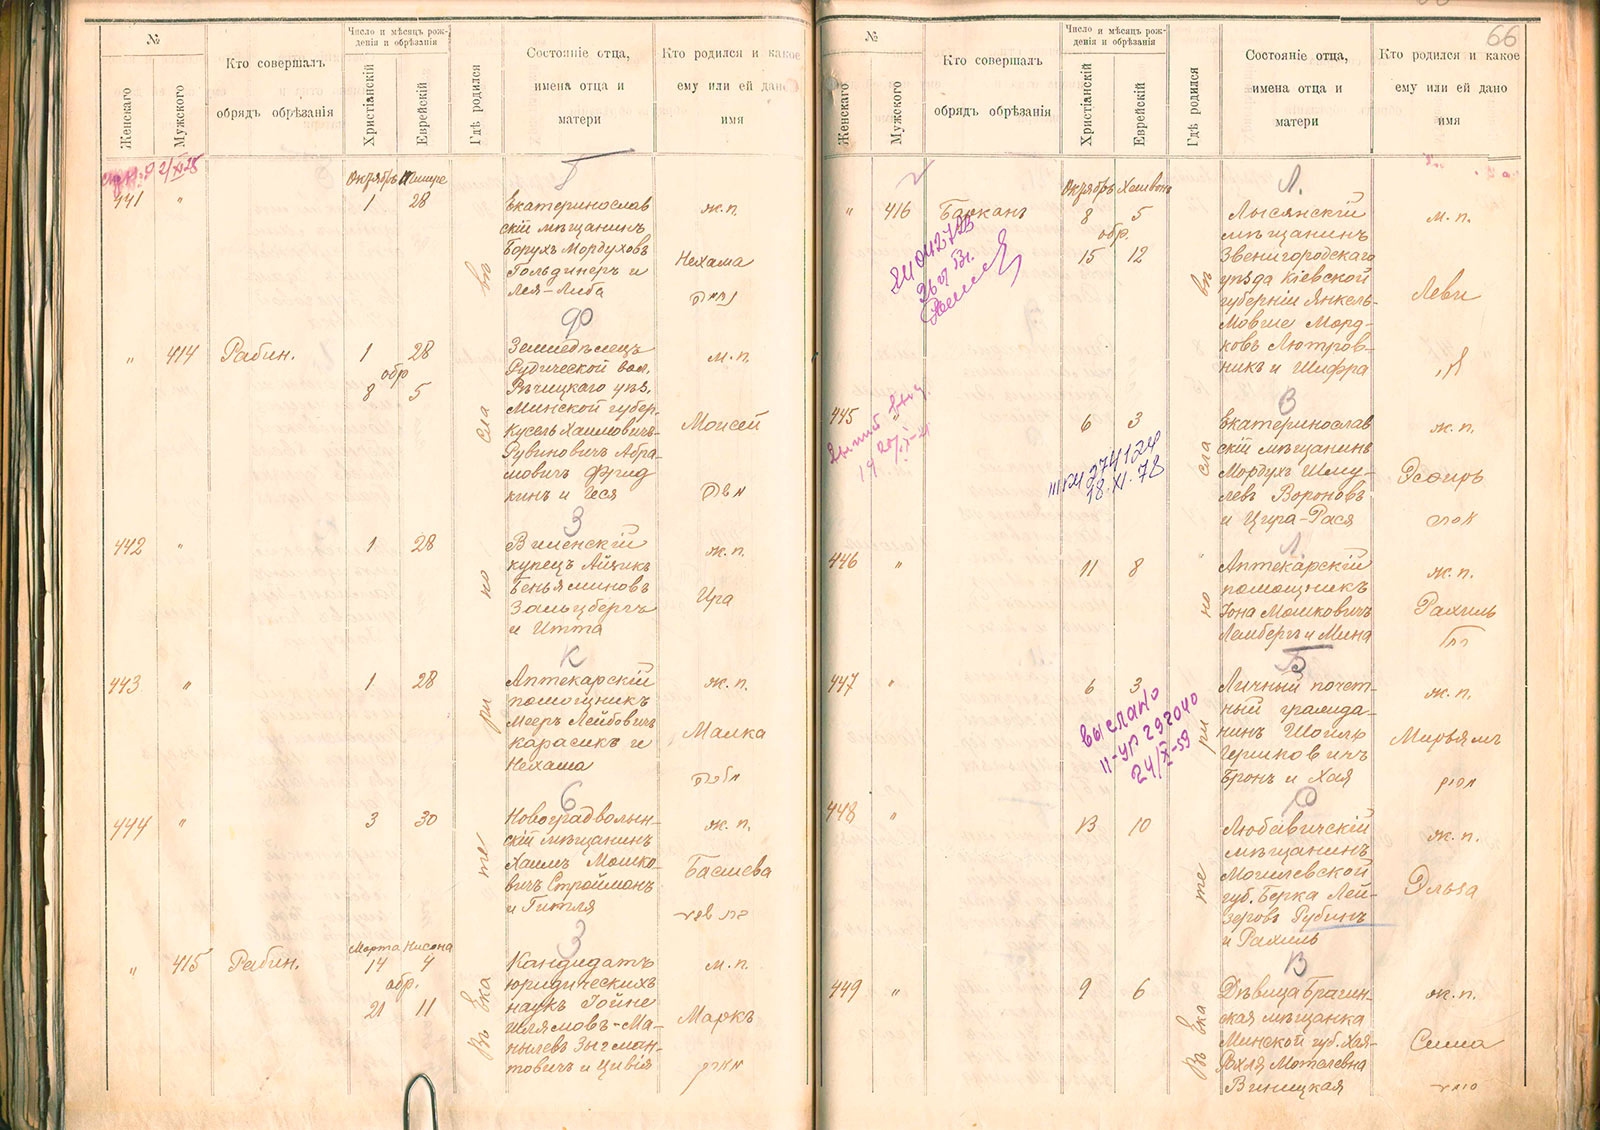 №
Женскаго
Мужского
Кто совершалъ
обрядъ обрѣзанія
Число и мѣсяцъ рож-
денія и обрѣзанія
Христіанскій
Еврейскій
Гдѣ родился
Состояніе отца,
имена отца и
матери
Кто родился и какое
ему или ей дано
имя
2/XI 25
Октябрь Тишре
Г
441 " 1 28
Екатеринослав
скій мѣщанинъ
Борухъ Мордуховъ
Гольдинеръ и
Лея-Либа
ж.п.
Нехама
Ф
" 414 Рабин. 1 28
обр
8 5
Земледѣлецъ
вол.
Рѣчицкаго уѣз.
Минской губер.
Кусель Хаимовичъ-
Рувиновичъ Абра-
мовичъ Фрид
кинъ и Геся
м.п.
Моисей
З
442 " 1 28
Виленскій
купецъ Айзикъ
Беньяминовъ
Зальцбергъ
и Итта
ж.п.
Ира
К
443 " 1 28
Аптекарскій
помощникъ
Мееръ Лейбовичъ
Карасикъ и
Нехама
ж.п.
Малка
С
444 " 3 30
Новоградволын-
скій мѣщанинъ
Хаимъ Мошко-
вичъ Стройманъ
и Гитля
ж.п.
Басшева
Марта Нисона
З
" 415 Рабин. 14 4
обр.
21 11
Кандидатъ
юридическихъ
наукъ Гойне
Шлямовъ-Ма-
нылевъ Зыгман-
товичъ и Цивія
м.п.
Маркъ
Въ Ека
те
ри
но
сла
въ
66
№
Женскаго
Мужского
Кто совершалъ
обрядъ обрѣзанія
Число и мѣсяцъ рож-
денія и обрѣзанія
Христіанскій
Еврейскій
Гдѣ родился
Состояніе отца,
имена отца и
матери
Кто родился и какое
ему или ей дано
имя
Октябрь Хешвона
Л.
" 416 Баркань 8 5
обр.
15 12
Лысянскій
мѣщанинъ
Звенигородскаго
уѣзда Кіевской
губерніи Янкель-
Мовше Морд-
ковъ Лютров-
никъ и Шифра
м.п.
Леви
В
445 " 6 3
274124
18.XI.78
Екатеринослав
скій мѣщанинъ
Мордухъ Шму-
левъ Вороновъ
и Цира-Рася
ж.п.
Эсфирь
Л.
446 " 11 8
Аптекарскій
помощникъ
Іона Мошковичъ
Лембергъ и Мина
ж.п.
Рахиль
Б
447 " 6 3
выслано
II-УР 292040
24/X-59
Личный почет-
ный гражда-
нинъ Шоилъ
Гершковинъ
Бронъ и Хая
ж.п.
Мирьямъ
Р
448 " 13 10
Любавичскій
мѣщанинъ
Могилевской
губ. Берка Лей-
зеровъ Рубинъ
и Рахиль
ж.п.
Эльза
В
449 " 9 6
Дѣвица Брагин-
ская мѣщанка
Минской губ. Хая-
Рохля Мотелевна
Виницкая
ж.п.
Сима
Въ Ека
те
ри
но
сла
въ